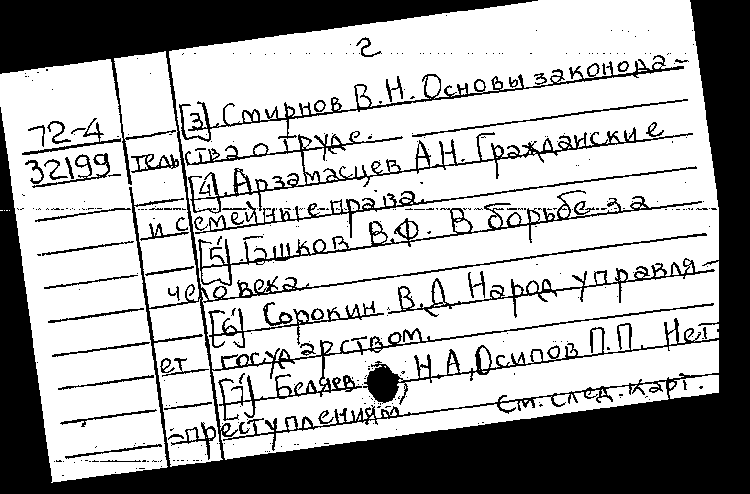 2
72-4
32199
[3]. Смирнов В.Н. Основы законода-
тельства о труде.
[4]. Арзамасцев А.Н. Гражданские
и семейные права.
[5]. Гашков В.Ф. В борьбе за
человека.
[6] Сорокин В.Д. Народ управля-
ет государством.
[7]. Беляев Н.А, Осипов П.П. Нет
преступлениям.
См. след. карт.